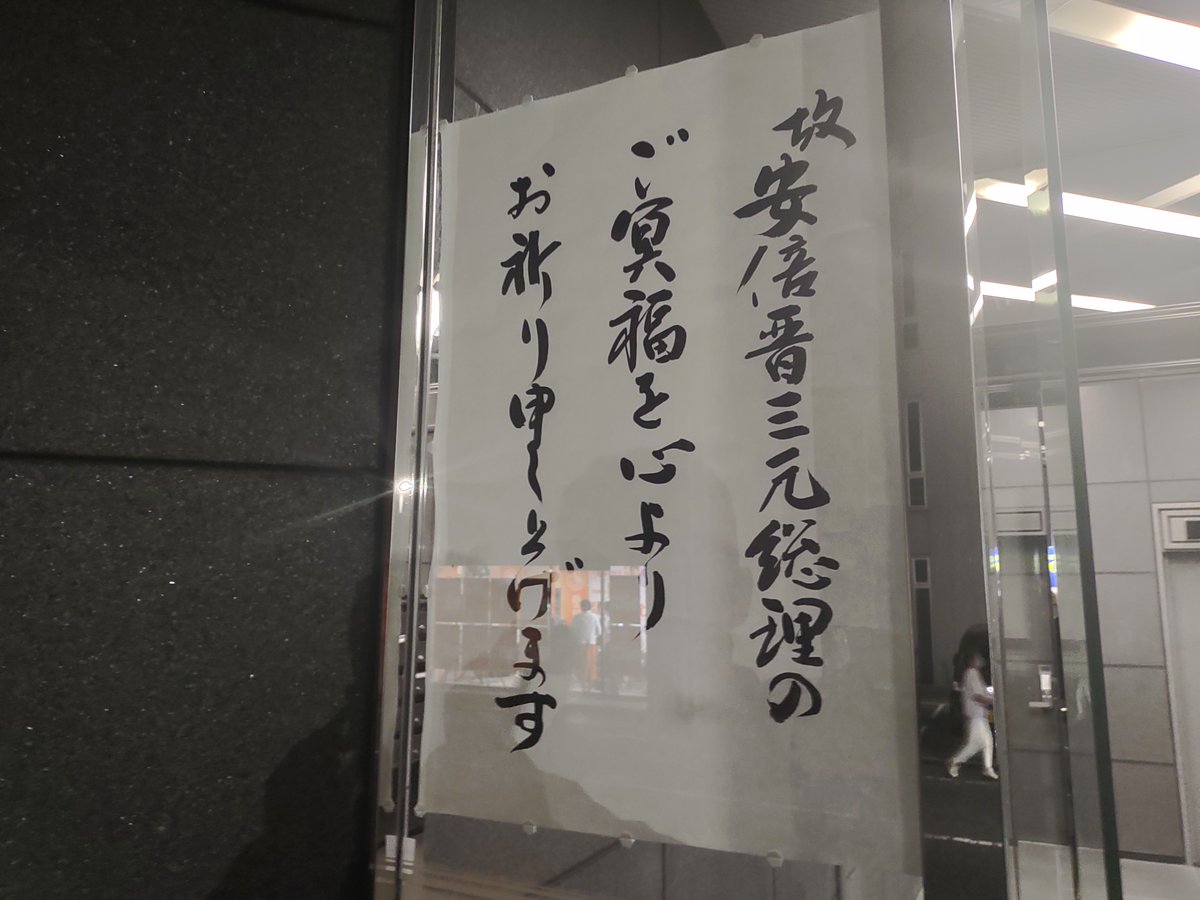 故安倍晋三元総理の
ご冥福を心より
お祈り申し上げます